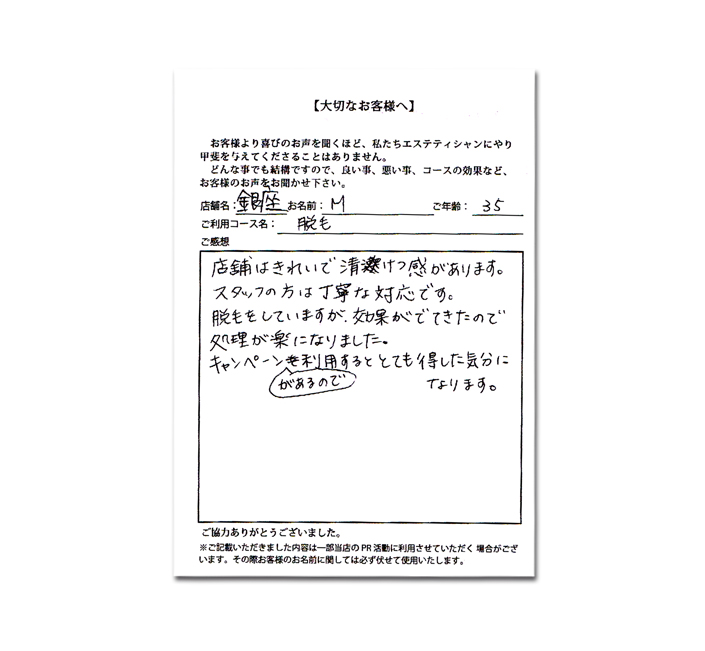 【大切なお客様へ】
お客様より喜びのお声を聞くほど、私たちエステティシャンにやり
甲斐を与えてくださることはありません。
どんな事でも結構ですので、良い事、悪い事、コースの効果など、
お客様のお声をお聞かせ下さい。
店舗名：銀座 お名前：M ご年齢：35
ご利用コース名：脱毛
ご感想
店舗はきれいで清潔けつ感があります。
スタッフの方は丁寧な対応です。
脱毛をしていますが、効果がでてきたので
処理が楽になりました。
キャンペーンを利用するととても得した気分に
があるので なります。
ご協力ありがとうございました。
※ご記載いただきました内容は一部当店の PR 活動に利用させていただく 場合がござ
います。その際お客様のお名前に関しては必ず伏せて使用いたします。